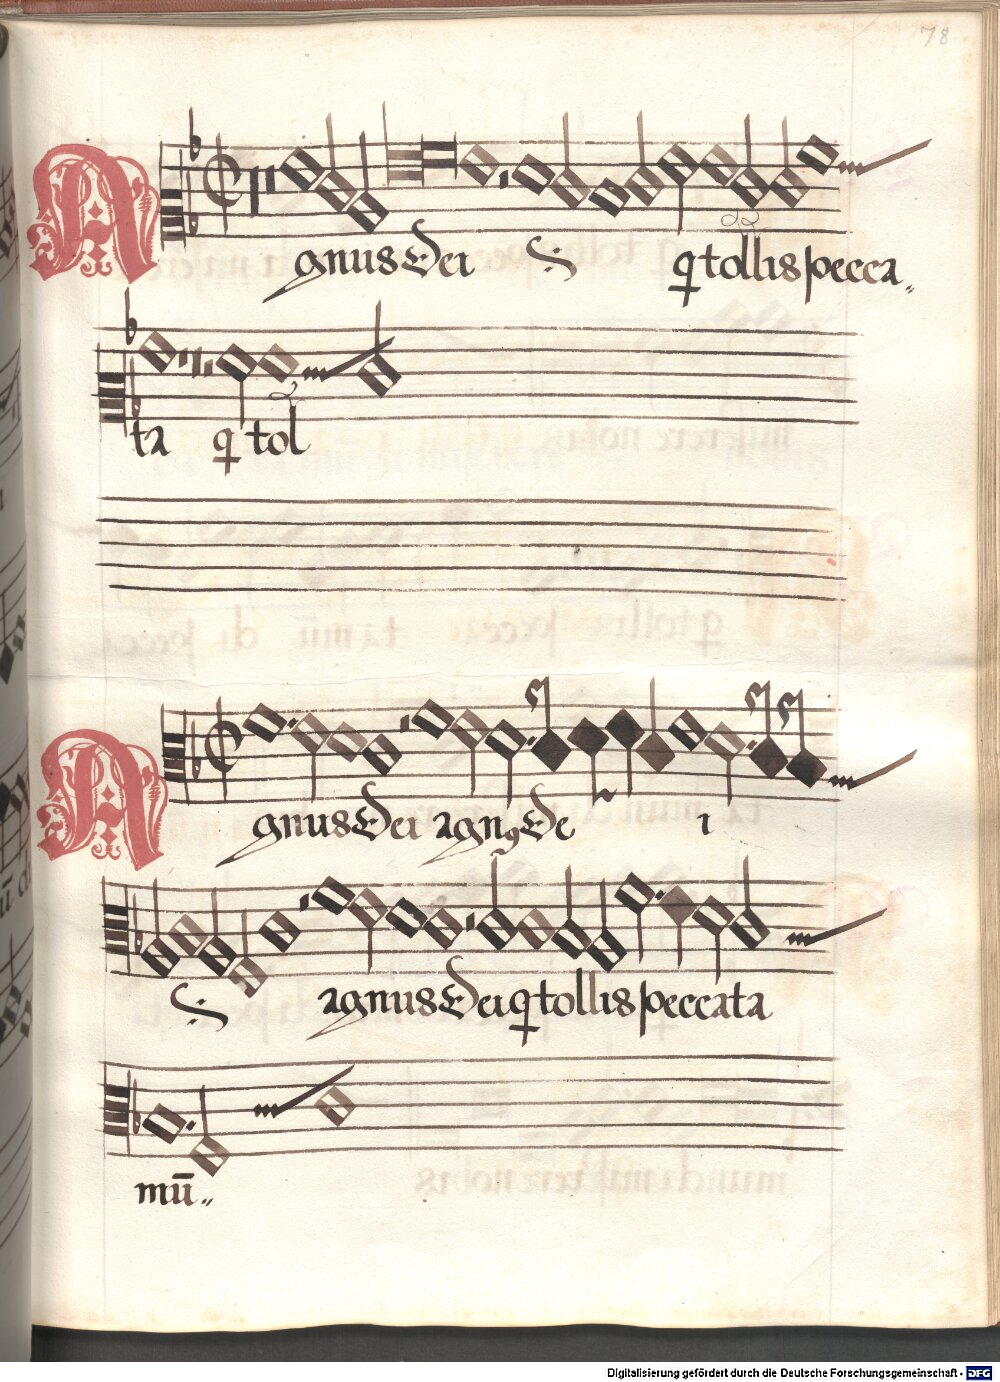 78
Agnus Dei q tollis pecca
ta q tol
Agnus Dei agnꝯ De i
agnus Dei q tollis peccata
mū
Digitalisierung gefördert durch die Deutsche Forschungsgemeinschaft - DFG